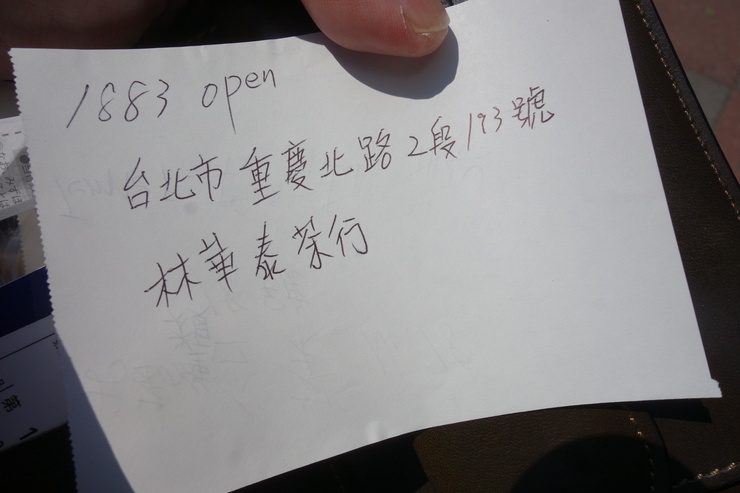 1883 open
台北市重慶北路2段193號
林華泰茶行